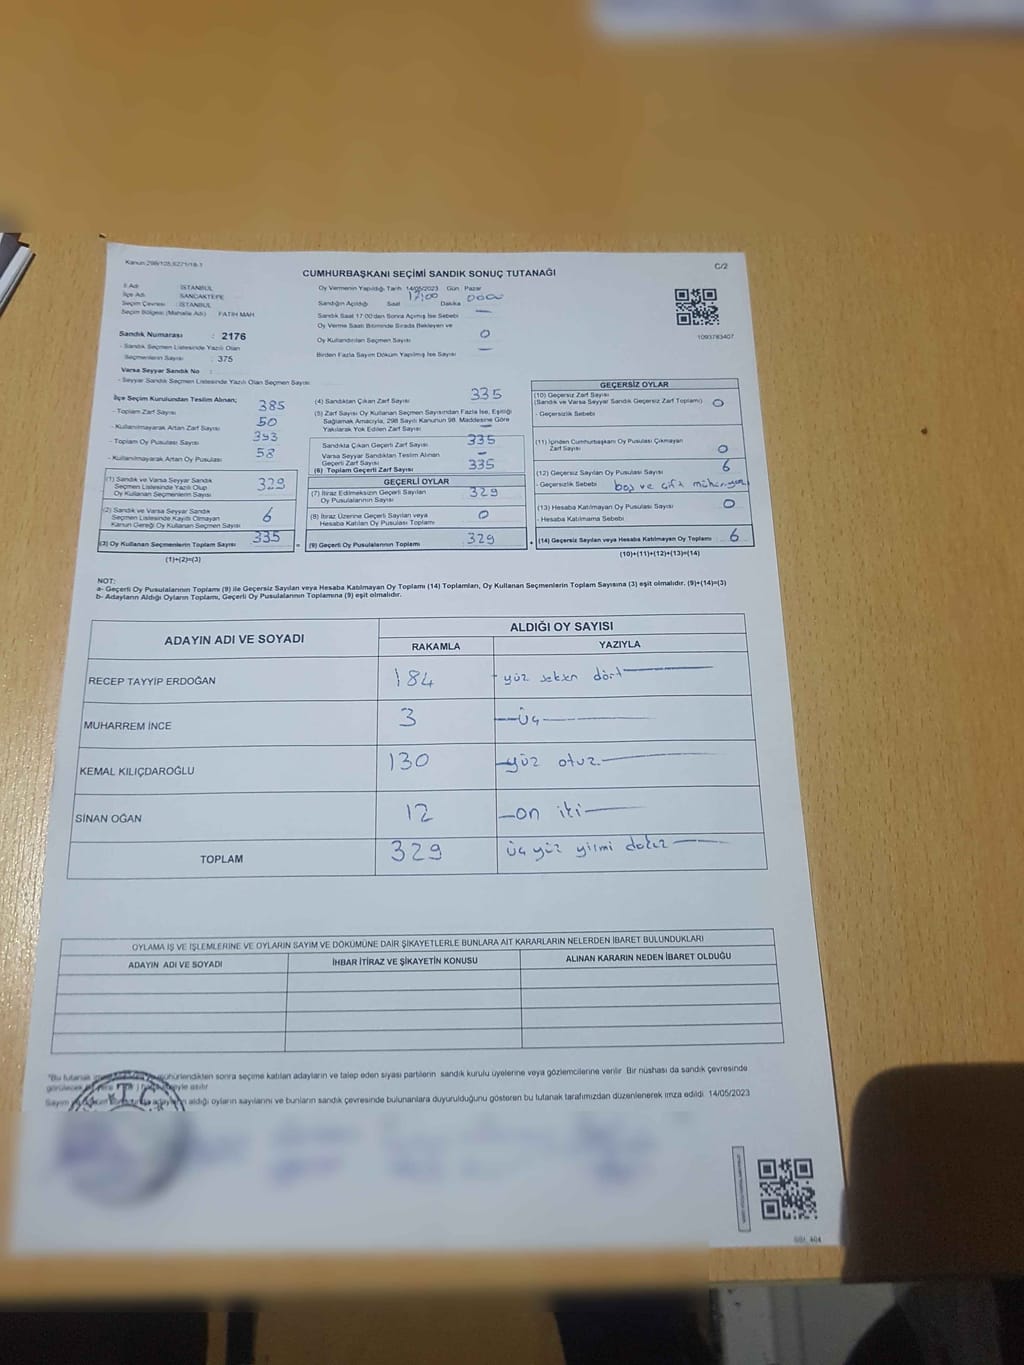 Kanun:298/105,6271/18-1
C/2
CUMHURBAŞKANI SEÇİMİ SANDIK SONUÇ TUTANAĞI
İl Adı : İSTANBUL
İlçe Adı : SANCAKTEPE
Seçim Çevresi : İSTANBUL
Seçim Bölgesi (Mahalle Adı) FATİH MAH.
Sandık Numarası : 2176
- Sandık Seçmen Listesinde Yazılı Olan
Seçmenlerin Sayısı : 375
Varsa Seyyar Sandık No :
- Seyyar Sandık Seçmen Listesinde Yazılı Olan Seçmen Sayısı:
Oy Vermenin Yapıldığı Tarih 14/05/2023 Gün : Pazar
Sandığın Açıldığı Saat 17:00 Dakika
Sandık Saat 17:00'den Sonra Açılmış İse Sebebi —
Oy Verme Saati Bitiminde Sırada Bekleyen ve
Oy Kullandırılan Seçmen Sayısı 0
Birden Fazla Sayım Döküm Yapılmış İse Sayısı —
1093783407
İlçe Seçim Kurulundan Teslim Alınan;
- Toplam Zarf Sayısı 385
- Kullanılmayarak Artan Zarf Sayısı 50
- Toplam Oy Pusulası Sayısı 393
- Kullanılmayarak Artan Oy Pusulası 58
(1) Sandık ve Varsa Seyyar Sandık
Seçmen Listesinde Yazılı Olup
Oy Kullanan Seçmenlerin Sayısı 329
(2) Sandık ve Varsa Seyyar Sandık
Seçmen Listesinde Kayıtlı Olmayan
Kanun Gereği Oy Kullanan Seçmen Sayısı 6
(3) Oy Kullanan Seçmenlerin Toplam Sayısı 335
(1)+(2)=(3)
(4) Sandıktan Çıkan Zarf Sayısı 335
(5) Zarf Sayısı Oy Kullanan Seçmen Sayısından Fazla İse, Eşitliği
Sağlamak Amacıyla, 298 Sayılı Kanunun 98. Maddesine Göre
Yakılarak Yok Edilen Zarf Sayısı —
Sandıkta Çıkan Geçerli Zarf Sayısı 335
Varsa Seyyar Sandıktan Teslim Alınan
Geçerli Zarf Sayısı —
(6) Toplam Geçerli Zarf Sayısı 335
GEÇERLİ OYLAR
(7) İtiraz Edilmeksizin Geçerli Sayılan
Oy Pusulalarının Sayısı 329
(8) İtiraz Üzerine Geçerli Sayılan veya
Hesaba Katılan Oy Pusulası Toplamı 0
= (9) Geçerli Oy Pusulalarının Toplamı 329
GEÇERSİZ OYLAR
(10) Geçersiz Zarf Sayısı
(Sandık ve Varsa Seyyar Sandık Geçersiz Zarf Toplamı) 0
- Geçersizlik Sebebi
(11) İçinden Cumhurbaşkanı Oy Pusulası Çıkmayan
Zarf Sayısı 0
(12) Geçersiz Sayılan Oy Pusulası Sayısı 6
- Geçersizlik Sebebi boş ve çift
(13) Hesaba Katılmayan Oy Pusulası Sayısı 0
- Hesaba Katılmama Sebebi
+ (14) Geçersiz Sayılan veya Hesaba Katılmayan Oy Toplamı 6
(10)+(11)+(12)+(13)=(14)
NOT:
a- Geçerli Oy Pusulalarının Toplamı (9) ile Geçersiz Sayılan veya Hesaba Katılmayan Oy Toplamı (14) Toplamları, Oy Kullanan Seçmenlerin Toplam Sayısına (3) eşit olmalıdır. (9)+(14)=(3)
b- Adayların Aldığı Oyların Toplamı, Geçerli Oy Pusulalarının Toplamına (9) eşit olmalıdır.
ADAYIN ADI VE SOYADI
ALDIĞI OY SAYISI
RAKAMLA YAZIYLA
RECEP TAYYİP ERDOĞAN 184 yüz seksen dört
MUHARREM İNCE 3 üç
KEMAL KILIÇDAROĞLU 130 yüz otuz
SİNAN OĞAN 12 on iki
TOPLAM 329 üç yüz yilmi dokuz
OYLAMA İŞ VE İŞLEMLERİNE VE OYLARIN SAYIM VE DÖKÜMÜNE DAİR ŞİKAYETLERLE BUNLARA AİT KARARLARIN NELERDEN İBARET BULUNDUKLARI
ADAYIN ADI VE SOYADI İHBAR İTİRAZ VE ŞİKAYETİN KONUSU ALINAN KARARIN NEDEN İBARET OLDUĞU
"Bu tutanak mühürlendikten sonra seçime katılan adayların ve talep eden siyasi partilerin sandık kurulu üyelerine veya gözlemcilerine verilir. Bir nüshası da sandık çevresinde
görülecek asılır.
Sayım adayların aldığı oyların sayılarını ve bunların sandık çevresinde bulunanlara duyurulduğunu gösteren bu tutanak tarafımızdan düzenlenerek imza edildi. 14/05/2023
T.C.